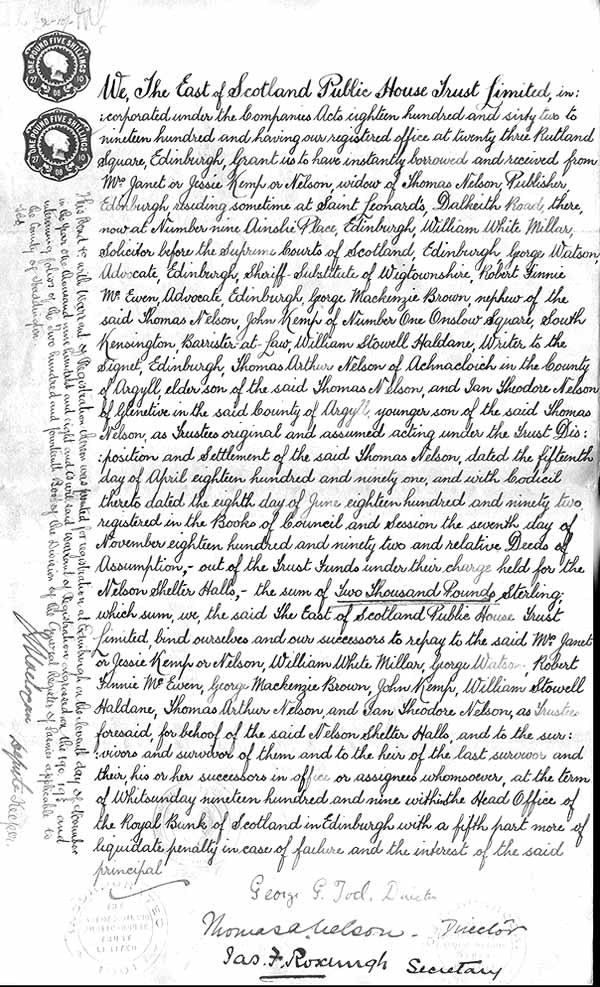 ONE POUND FIVE SHILLINGS
27 10
08
ONE POUND FIVE SHILLINGS
27 10
08
We, The East of Scotland Public House Trust Limited, in:
:corporated under the Companies Acts eighteen hundred and sixty two to
nineteen hundred and having our registered office at twenty three Rutland
Square, Edinburgh, Grant us to have instantly borrowed and received from
Mrs Janet or Jessie Kemp or Nelson, widow of Thomas Nelson, Publisher,
Edinburgh residing sometime at Saint Leonards, Dalkeith Road, there,
now at Number nine Ainslie Place, Edinburgh, William White Millar,
Solicitor before the Supreme Courts of Scotland, Edinburgh, George Watson,
Advocate, Edinburgh, Sheriff-Substitute of Wigtownshire, Robert Finnie
McEwen, Advocate, Edinburgh, George Mackenzie Brown, nephew of the
said Thomas Nelson, John Kemp of Number One Onslow Square, South
Kensington, Barrister-at-Law, William Stowell Haldane, Writer to the
Signet, Edinburgh, Thomas Arthur Nelson of Achnacloich in the County
of Argyll, elder son of the said Thomas Nelson, and Ian Theodore Nelson
of Glenetive in the said County of Argyll, younger son of the said Thomas
Nelson, as Trustees original and assumed acting under the Trust Dis:
:position and Settlement of the said Thomas Nelson, dated the fifteenth
day of April eighteen hundred and ninety one, and with Codicil
thereto dated the eighth day of June eighteen hundred and ninety two,
registered in the Books of Council and Session the seventh day of
November eighteen hundred and ninety two and relative Deeds of
Assumption,- out of the Trust Funds under their charge held for the
Nelson Shelter Halls,- the sum of Two Thousand Pounds Sterling
which sum, we, the said The East of Scotland Public House Trust
Limited, bind ourselves and our successors to repay to the said Mrs Janet
or Jessie Kemp or Nelson, William White Millar, George Watson, Robert
Finnie McEwen, George Mackenzie Brown, John Kemp, William Stowell
Haldane, Thomas Arthur Nelson and Ian Theodore Nelson, as Trustees
foresaid, for behoof of the said Nelson Shelter Halls, and to the sur:
:vivors and survivor of them and to the heir of the last survivor and
their, his or her successors in office or assignees whomsoever, at the term
of Whitsunday nineteen hundred and nine within the Head Office of
the Royal Bank of Scotland in Edinburgh with a fifth part more of
liquidate penalty in case of failure and the interest of the said
principal
George G. Tod. Director
Thomas A. Nelson. Director
Jas. F. Roxburgh Secretary
This Bond &c with Warrant of Registration thereon was presented for registration at Edinburgh on the eleventh day of November
in the year One thousand nine hundred and eight and is with said warrant of Registration engrossed on the
folios of the Two hundred and fourteenth Book of the Division of the General Register of Sasines applicable to
the County of Haddington
Depute Keeper.